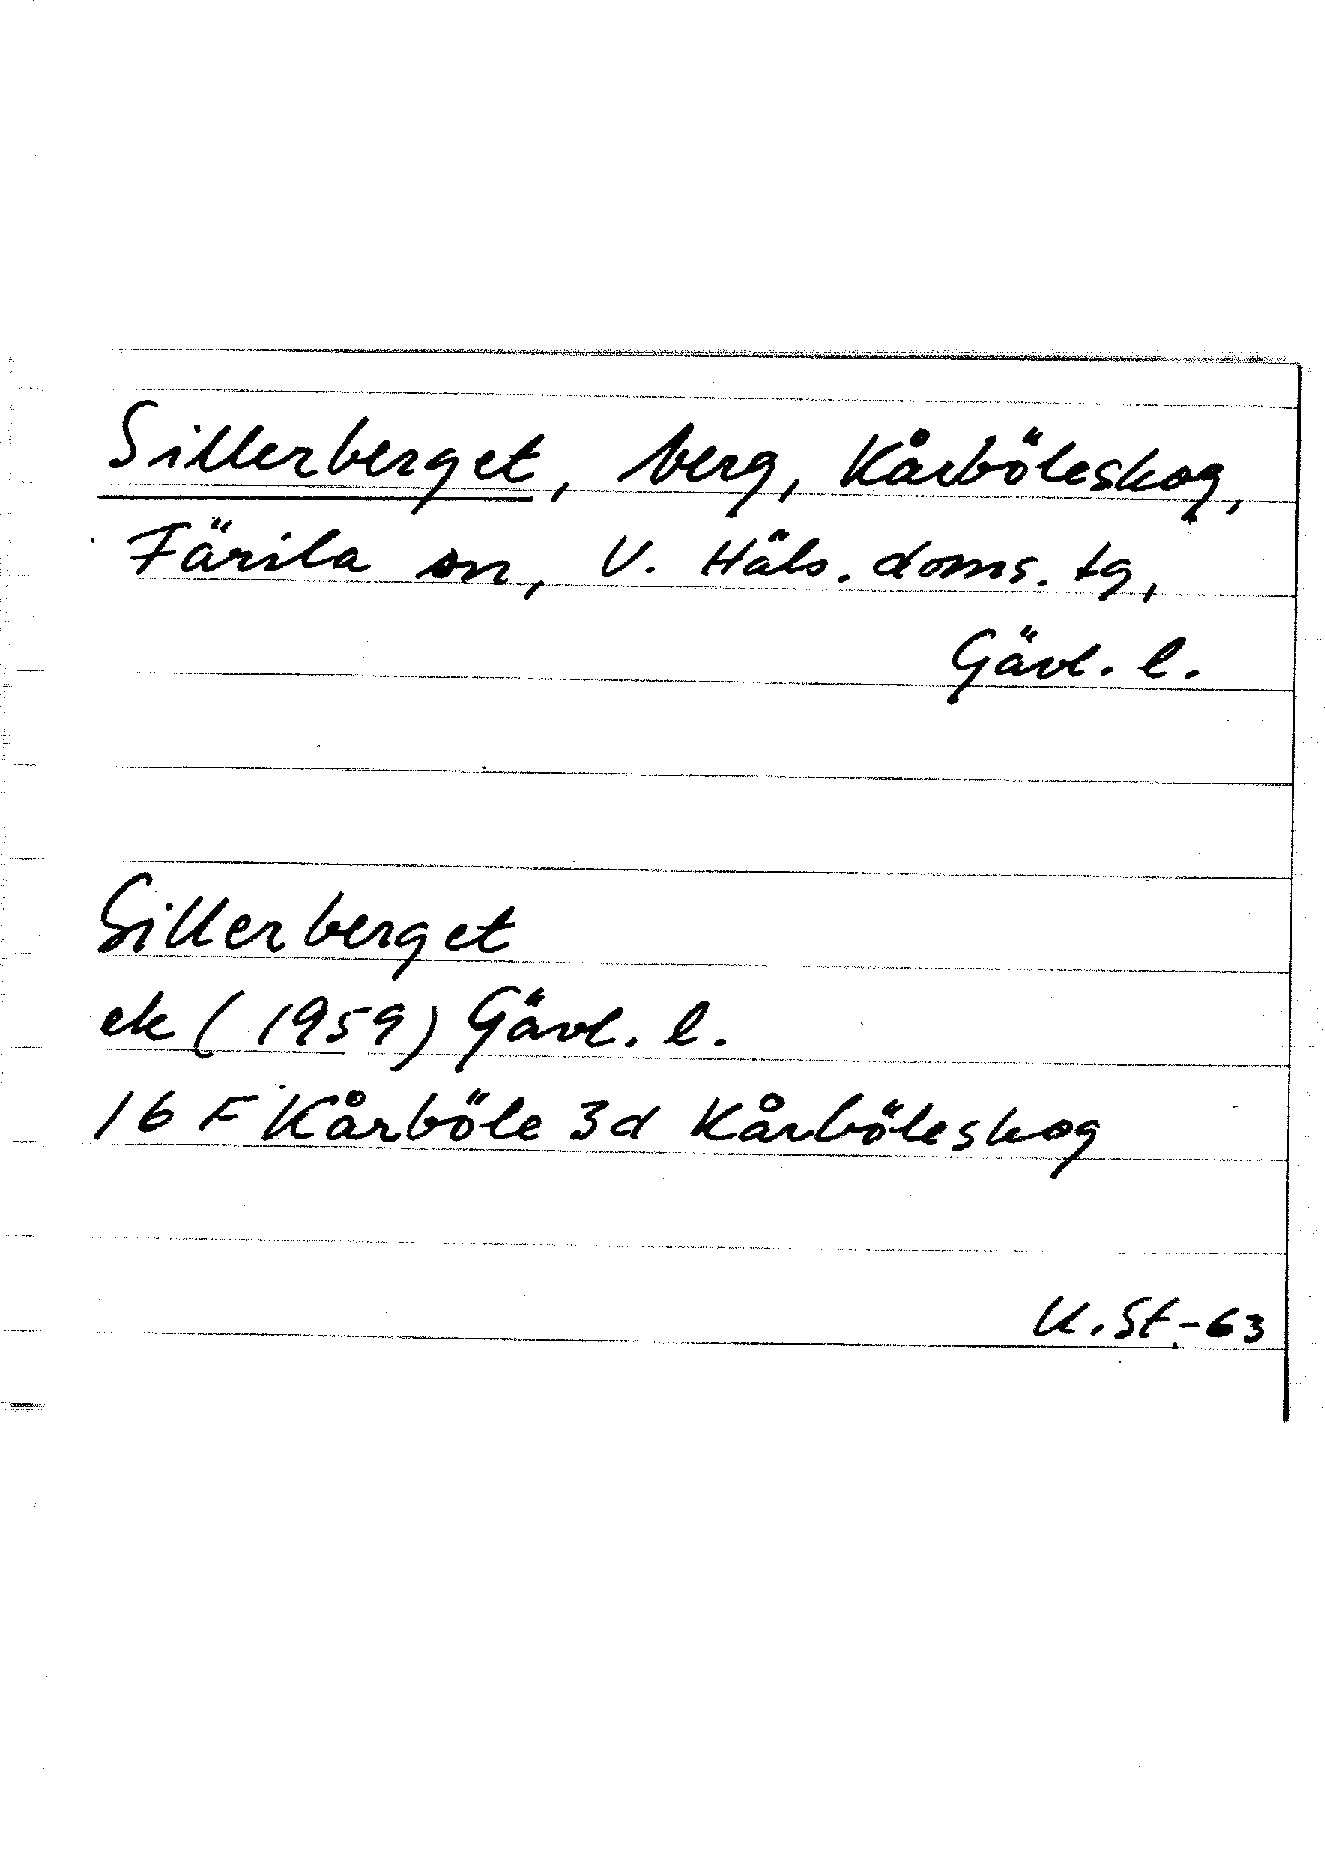 Sillerberget, berg, Kårböleskog,
Färila sn, V. Häls. doms. tg,
Gävl. l.
Sillerberget
ek (1959) Gävl. l.
16 F Kårböle 3d Kårböleskog
K. St.-63